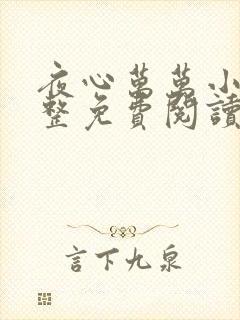 夜心萬萬小
整免費閱讀
言下九泉